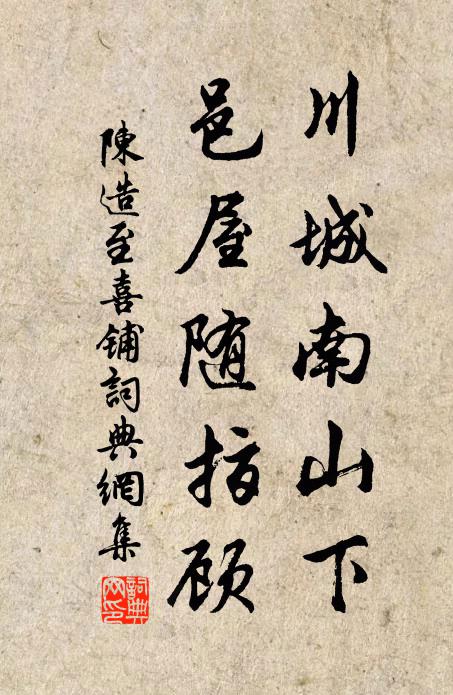 川城南山下
邑屋随指顾
陳造至喜铺詞典網集
詞典网印